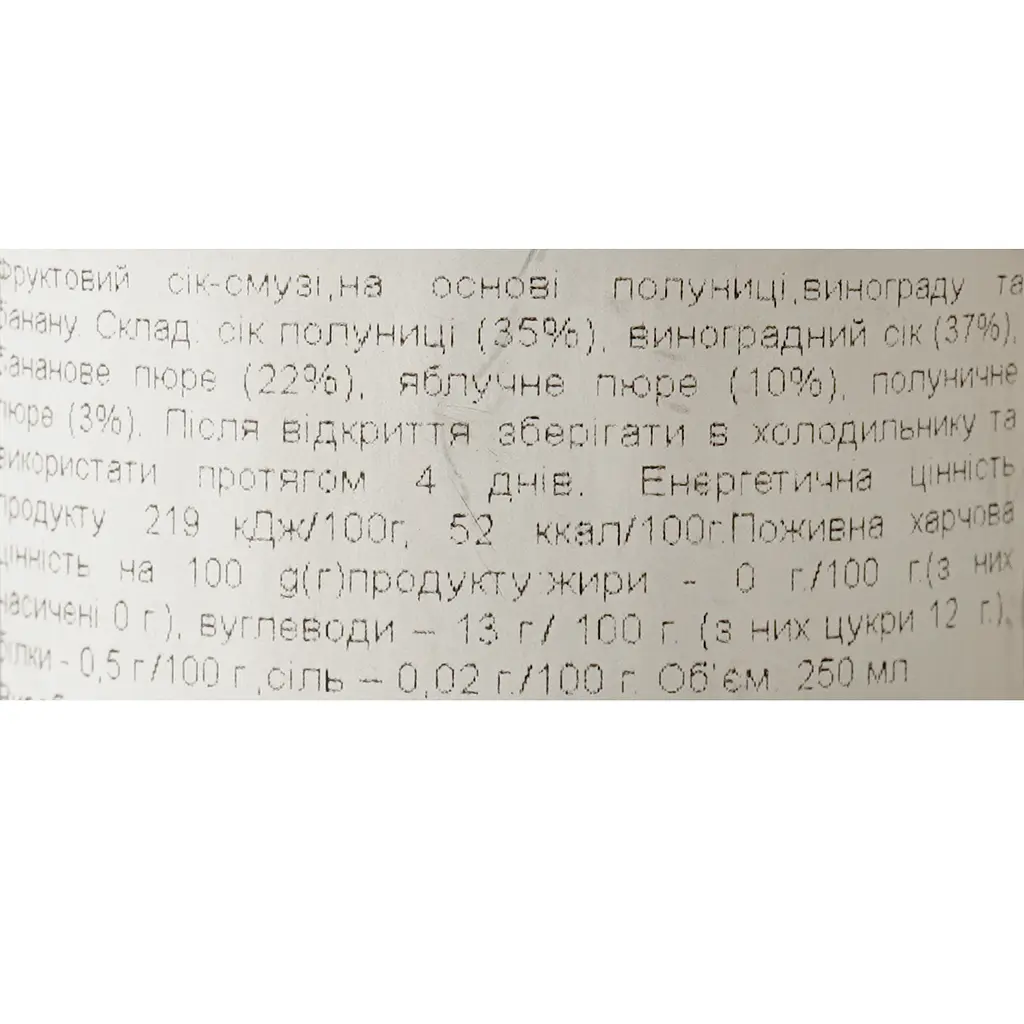 Фруктовий сік-смузі,на основі полуниці,винограду та
банану. Склад: сік полуниці (35%), виноградний сік (37%),
бананове пюре (22%), яблучне пюре (10%), полуничне
пюре (3%). Після відкриття зберігати в холодильнику та
використати протягом 4 днів. Енергетична цінність
продукту 219 кДж/100г, 52 ккал/100г.Поживна харчова
цінність на 100 g(г)продукту:жири - 0 г./100 г.(з них
насичені 0 г.), вуглеводи – 13 г/ 100 г. (з них цукри 12 г.),
білки - 0,5 г/100 г.,сіль – 0,02 г./100 г. Об'єм: 250 мл